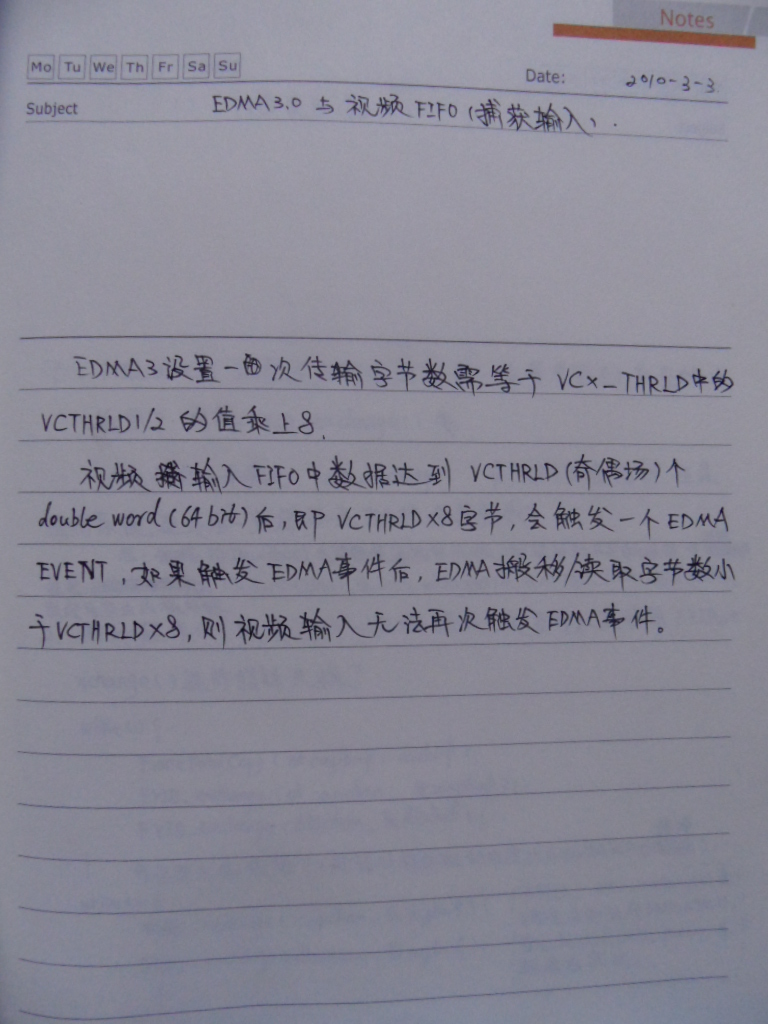 Notes
Mo Tu We Th Fr Sa Su
Date: 2010-3-3
Subject EDMA3.0 与 视频 FIFO (捕获输入).
EDMA3设置一次传输字节数需等于 VCx_THRLD中的
VCTHRLD1/2 的值乘上8.
视频输入FIFO中数据达到 VCTHRLD(奇偶场)个
double word (64bit)后,即 VCTHRLD×8字节,会触发一个EDMA
EVENT,如果触发EDMA事件后,EDMA搬移/读取字节数小
于VCTHRLD×8,则视频输入无法再次触发EDMA事件。